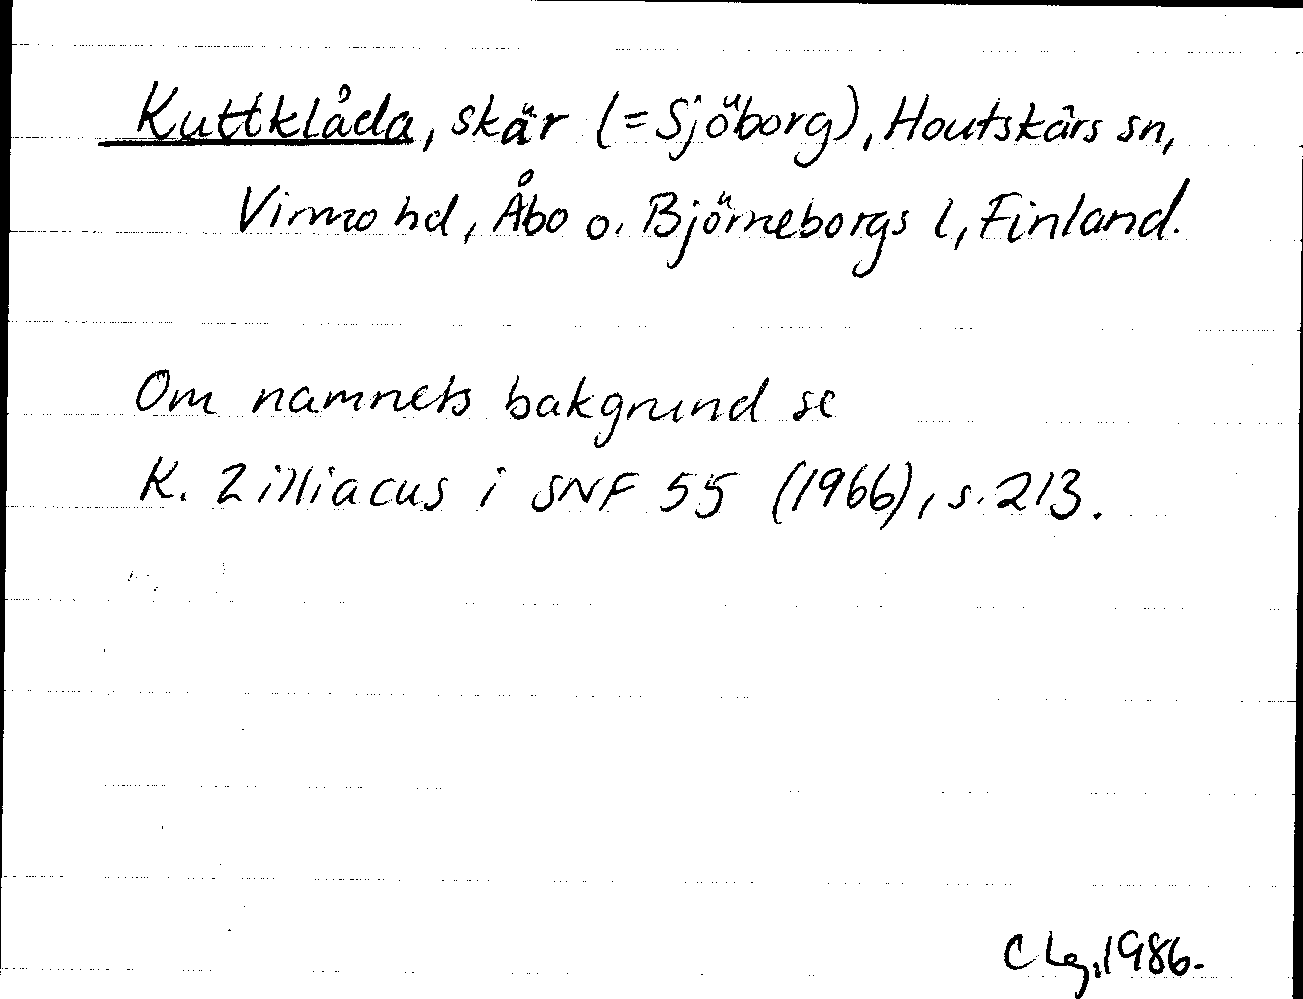 Kuttklåda, skär (= Sjöborg), Houtskärs sn,
Virmo hd, Åbo o. Björneborgs l, Finland.
Om namnets bakgrund se
K. Zilliacus i SNF 55 (1966), s. 213.
C Lg, 1986.